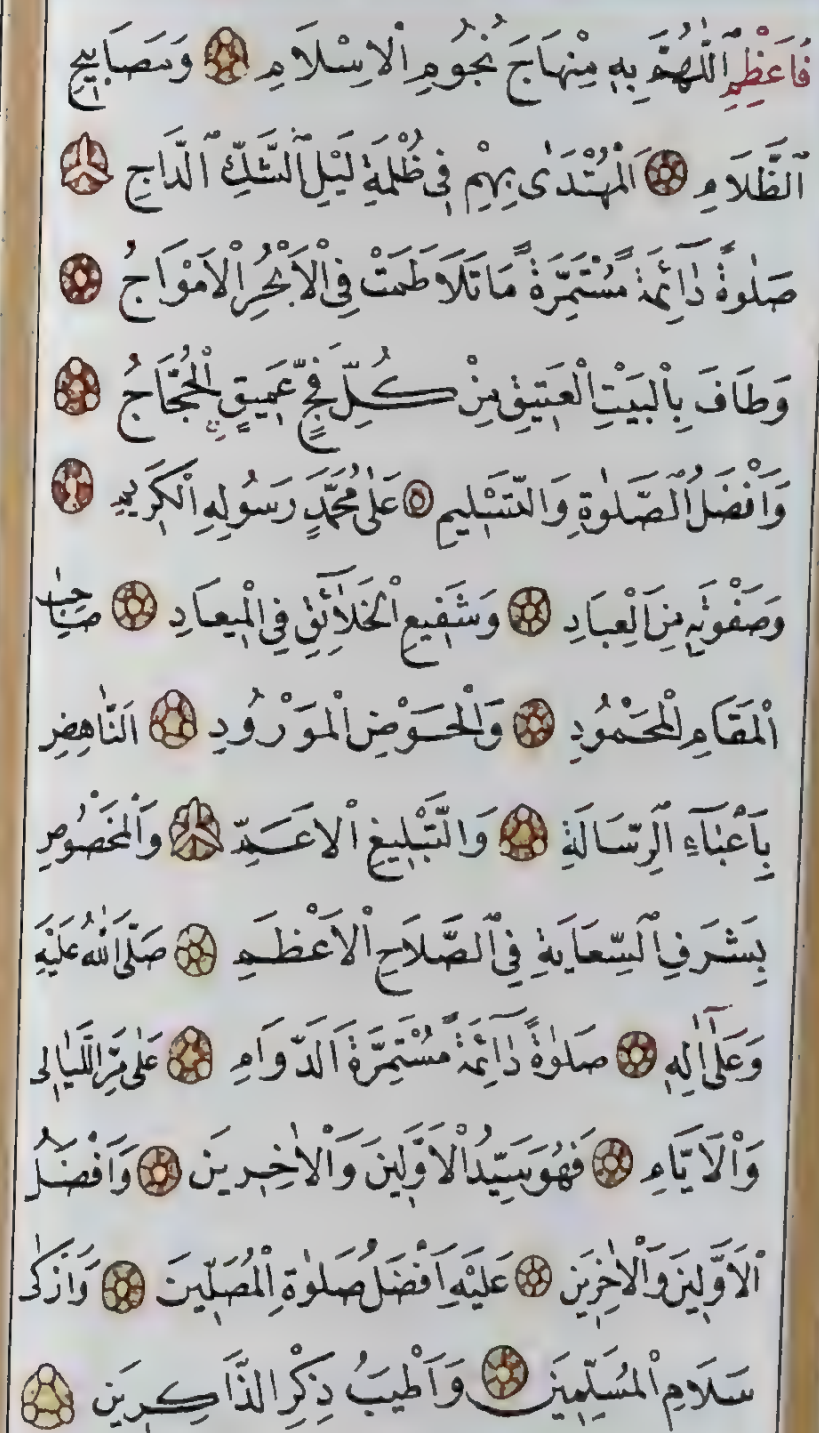 فَاَعْظِمِ اَللّٰهُمَّ بِهِ مِنْهَاجَ نُجُومِ اْلاِسْلَامِ ۞ وَمَصَابِيحِ
اَلظَّلَامِ ۞ اَلْمُهْتَدٰى بِهِمْ فِى ظُلْمَةِ لَيْلِ الشَّكِّ اَلدَّاجِ ۞
صَلٰوةً دَائِمَةً مُسْتَمِرَّةً مَا تَلَاطَمَتْ فِى اْلاَبْحُرِ اْلاَمْوَاجُ ۞
وَطَافَ بِالْبَيْتِ الْعَتِيقِ مِنْ كُلِّ فَجٍّ عَمِيقٍ الْحُجَّاجُ ۞
وَاَفْضَلُ الصَّلٰوةِ وَالتَّسْلِيمِ ۞ عَلٰى مُحَمَّدٍ رَسُولِهِ الْكَرِيمِ ۞
وَصَفْوَتِهِ مِنَ الْعِبَادِ ۞ وَشَفِيعِ الْخَلَائِقِ فِى الْمِيعَادِ ۞ صَاحِبِ
اَلْمَقَامِ الْمَحْمُودِ ۞ وَالْحَوْضِ الْمَوْرُودِ ۞ اَلنَّاهِضِ
بِاَعْبَاءِ الرِّسَالَةِ ۞ وَالتَّبْلِيغِ اْلاَعَمِّ ۞ وَالْمَخْصُوصِ
بِشَرَفِ السِّعَايَةِ فِى الصَّلَاحِ اْلاَعْظَمِ ۞ صَلَّى اللّٰهُ عَلَيْهِ
وَعَلٰى اٰلِهِ ۞ صَلٰوةً دَائِمَةً مُسْتَمِرَّةَ الدَّوَامِ ۞ عَلٰى مَرِّ اللَّيَالِى
وَاْلاَيَّامِ ۞ فَهُوَ سَيِّدُ اْلاَوَّلِينَ وَاْلاٰخِرِينَ ۞ وَاَفْضَلُ
اْلاَوَّلِينَ وَاْلاٰخِرِينَ ۞ عَلَيْهِ اَفْضَلُ صَلٰوةِ الْمُصَلِّينَ ۞ وَاَزْكٰى
سَلَامِ الْمُسَلِّمِينَ ۞ وَاَطْيَبُ ذِكْرِ الذَّاكِرِينَ ۞